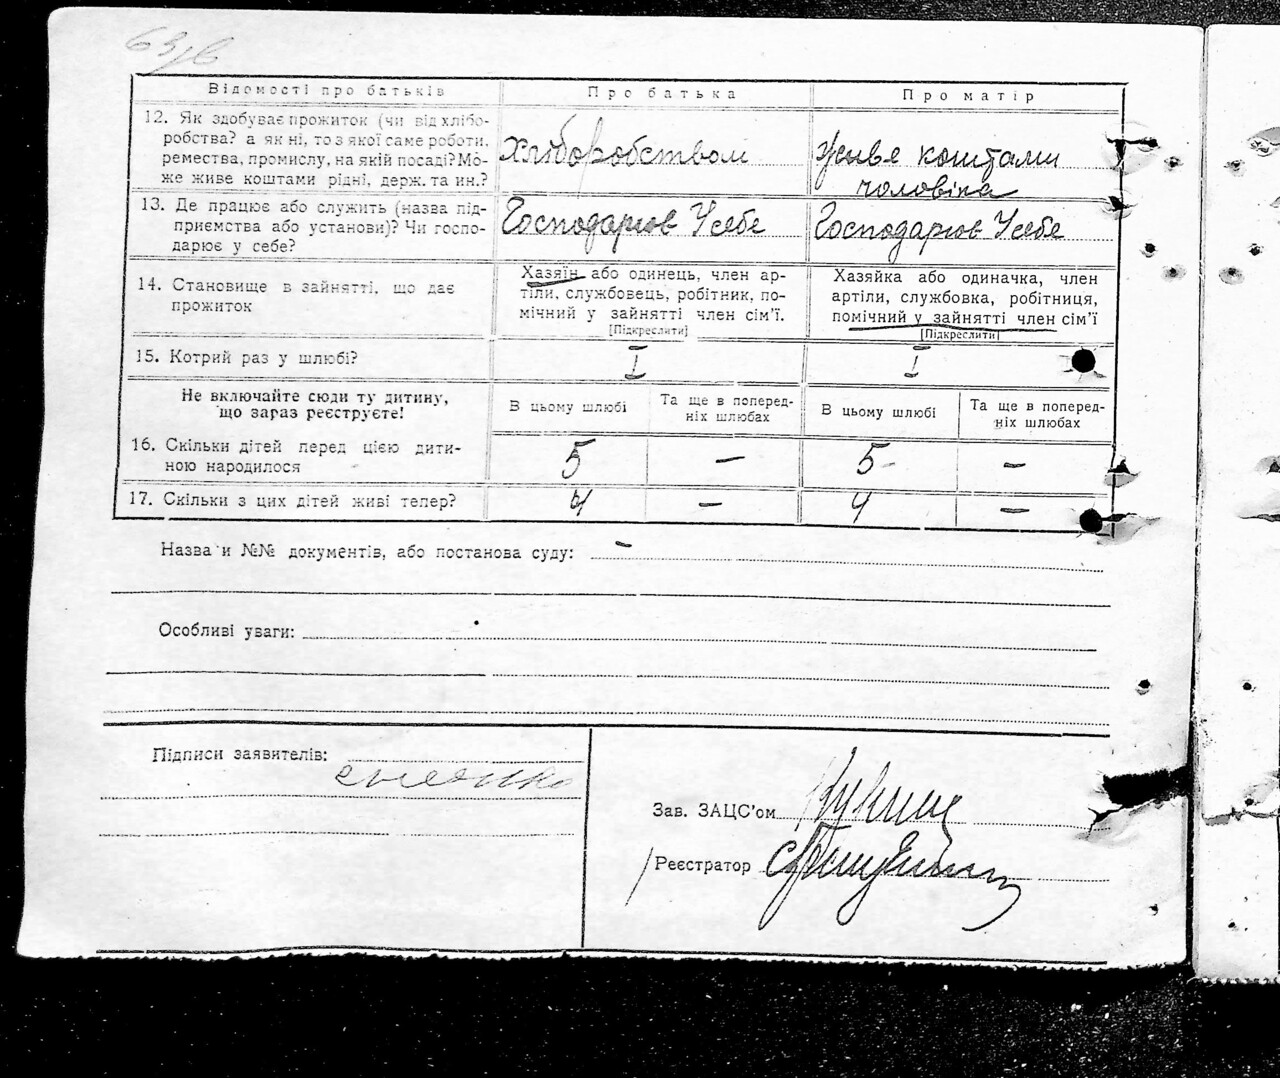 63/в
Відомості про батьків Про батька Про матір
12. Як здобуває прожиток (чи від хлібо-
робства? а як ні, то з якої саме роботи,
ремества, промислу, на якій посаді? Мо-
же живе коштами рідні, держ. та ин.?
Хліборобством
Живе коштами
чоловіка
13. Де працює або служить (назва під-
приємства або установи)? Чи госпо-
дарює у себе?
Господарюв У себе
Господарюв У себе
14. Становище в зайнятті, що дає
прожиток
Хазяїн або одинець, член ар-
тіли, службовець, робітник, по-
мічний у зайнятті член сім'ї.
[Підкреслити]
Хазяйка або одиначка, член
артіли, службовка, робітниця,
помічний у зайнятті член сім'ї
[Підкреслити]
15. Котрий раз у шлюбі? I I
Не включайте сюди ту дитину,
що зараз реєструєте!
В цьому шлюбі
Та ще в поперед-
ніх шлюбах
В цьому шлюбі
Та ще в поперед-
ніх шлюбах
16. Скільки дітей перед цією дити-
ною народилося
5 — 5 —
17. Скільки з цих дітей живі тепер? 4 — 4 —
Назва и №№ документів, або постанова суду: —
Особливі уваги:
Підписи заявителів:
Зав. ЗАЦС'ом
Реєстратор